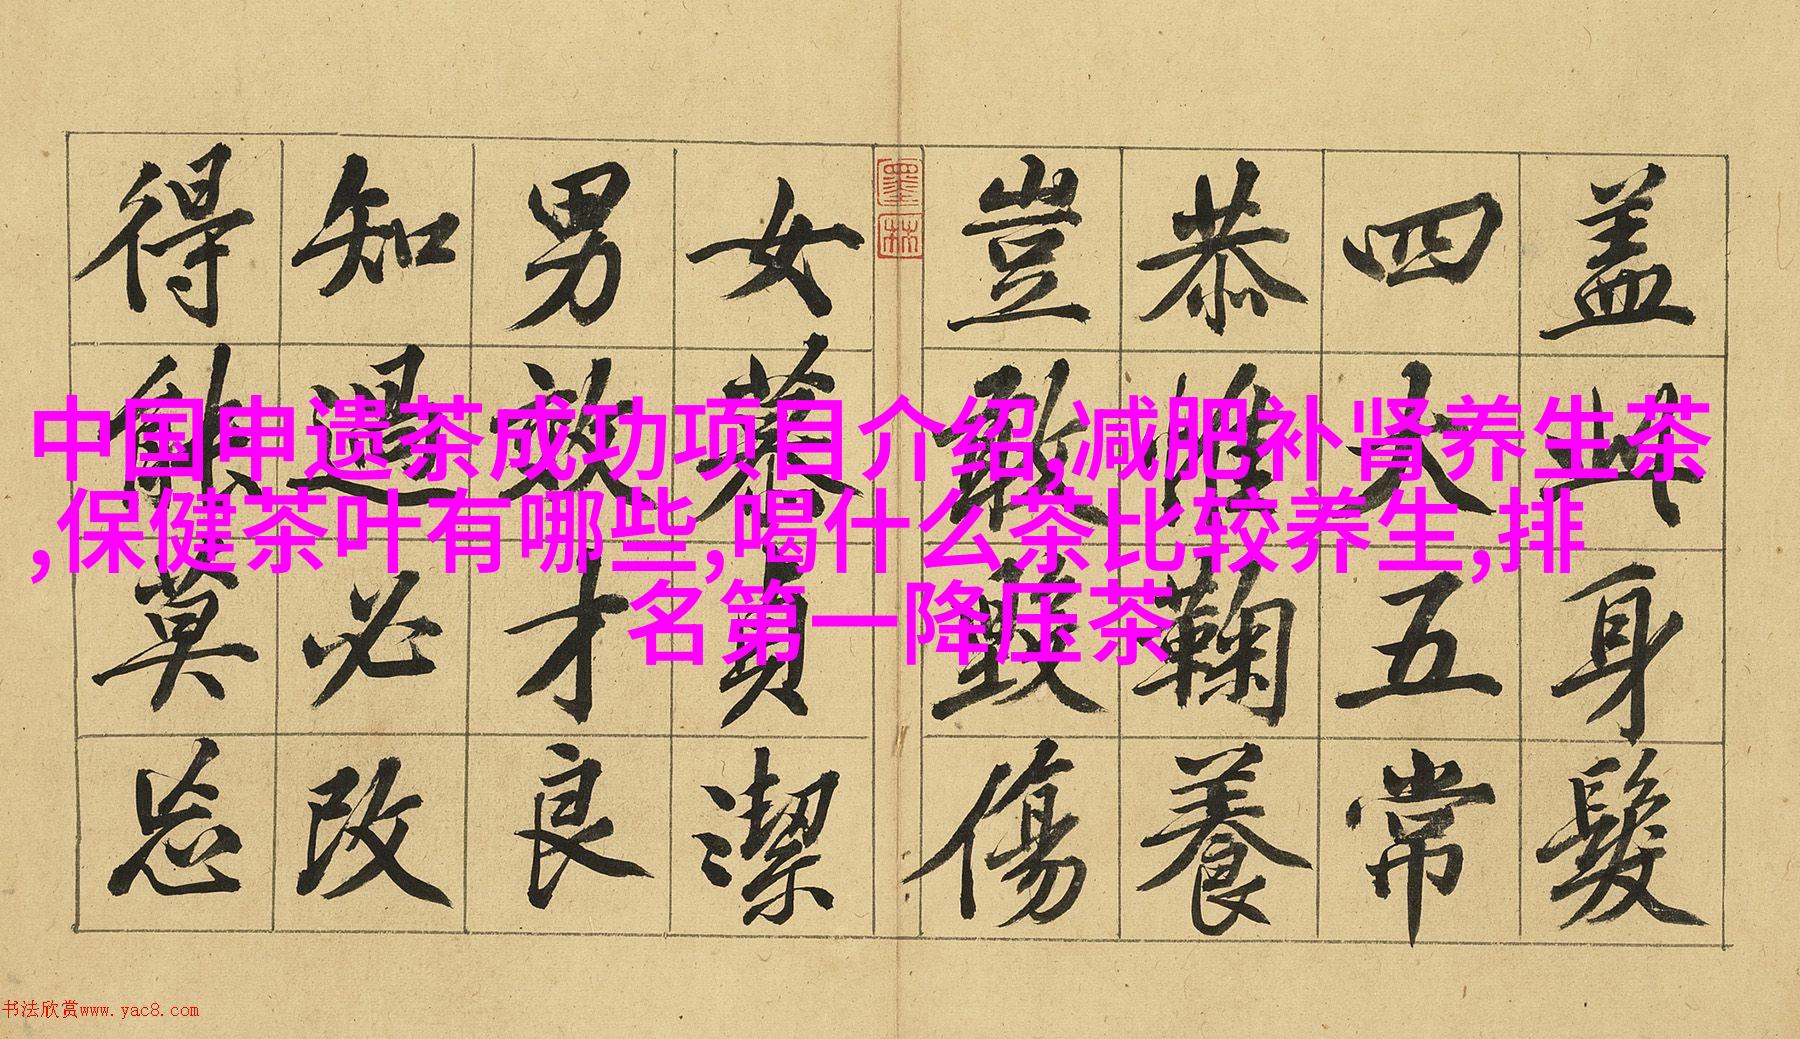 中国申遗茶成功项目介绍,减肥补肾养生茶
,保健茶叶有哪些,喝什么茶比较养生,排
名第一降压茶
盖此身髮
四大五常
恭惟鞠養
豈敢毀傷
女慕貞潔
男效才良
知過必改
得能莫忘
墨林
书法欣赏www.yac8.com